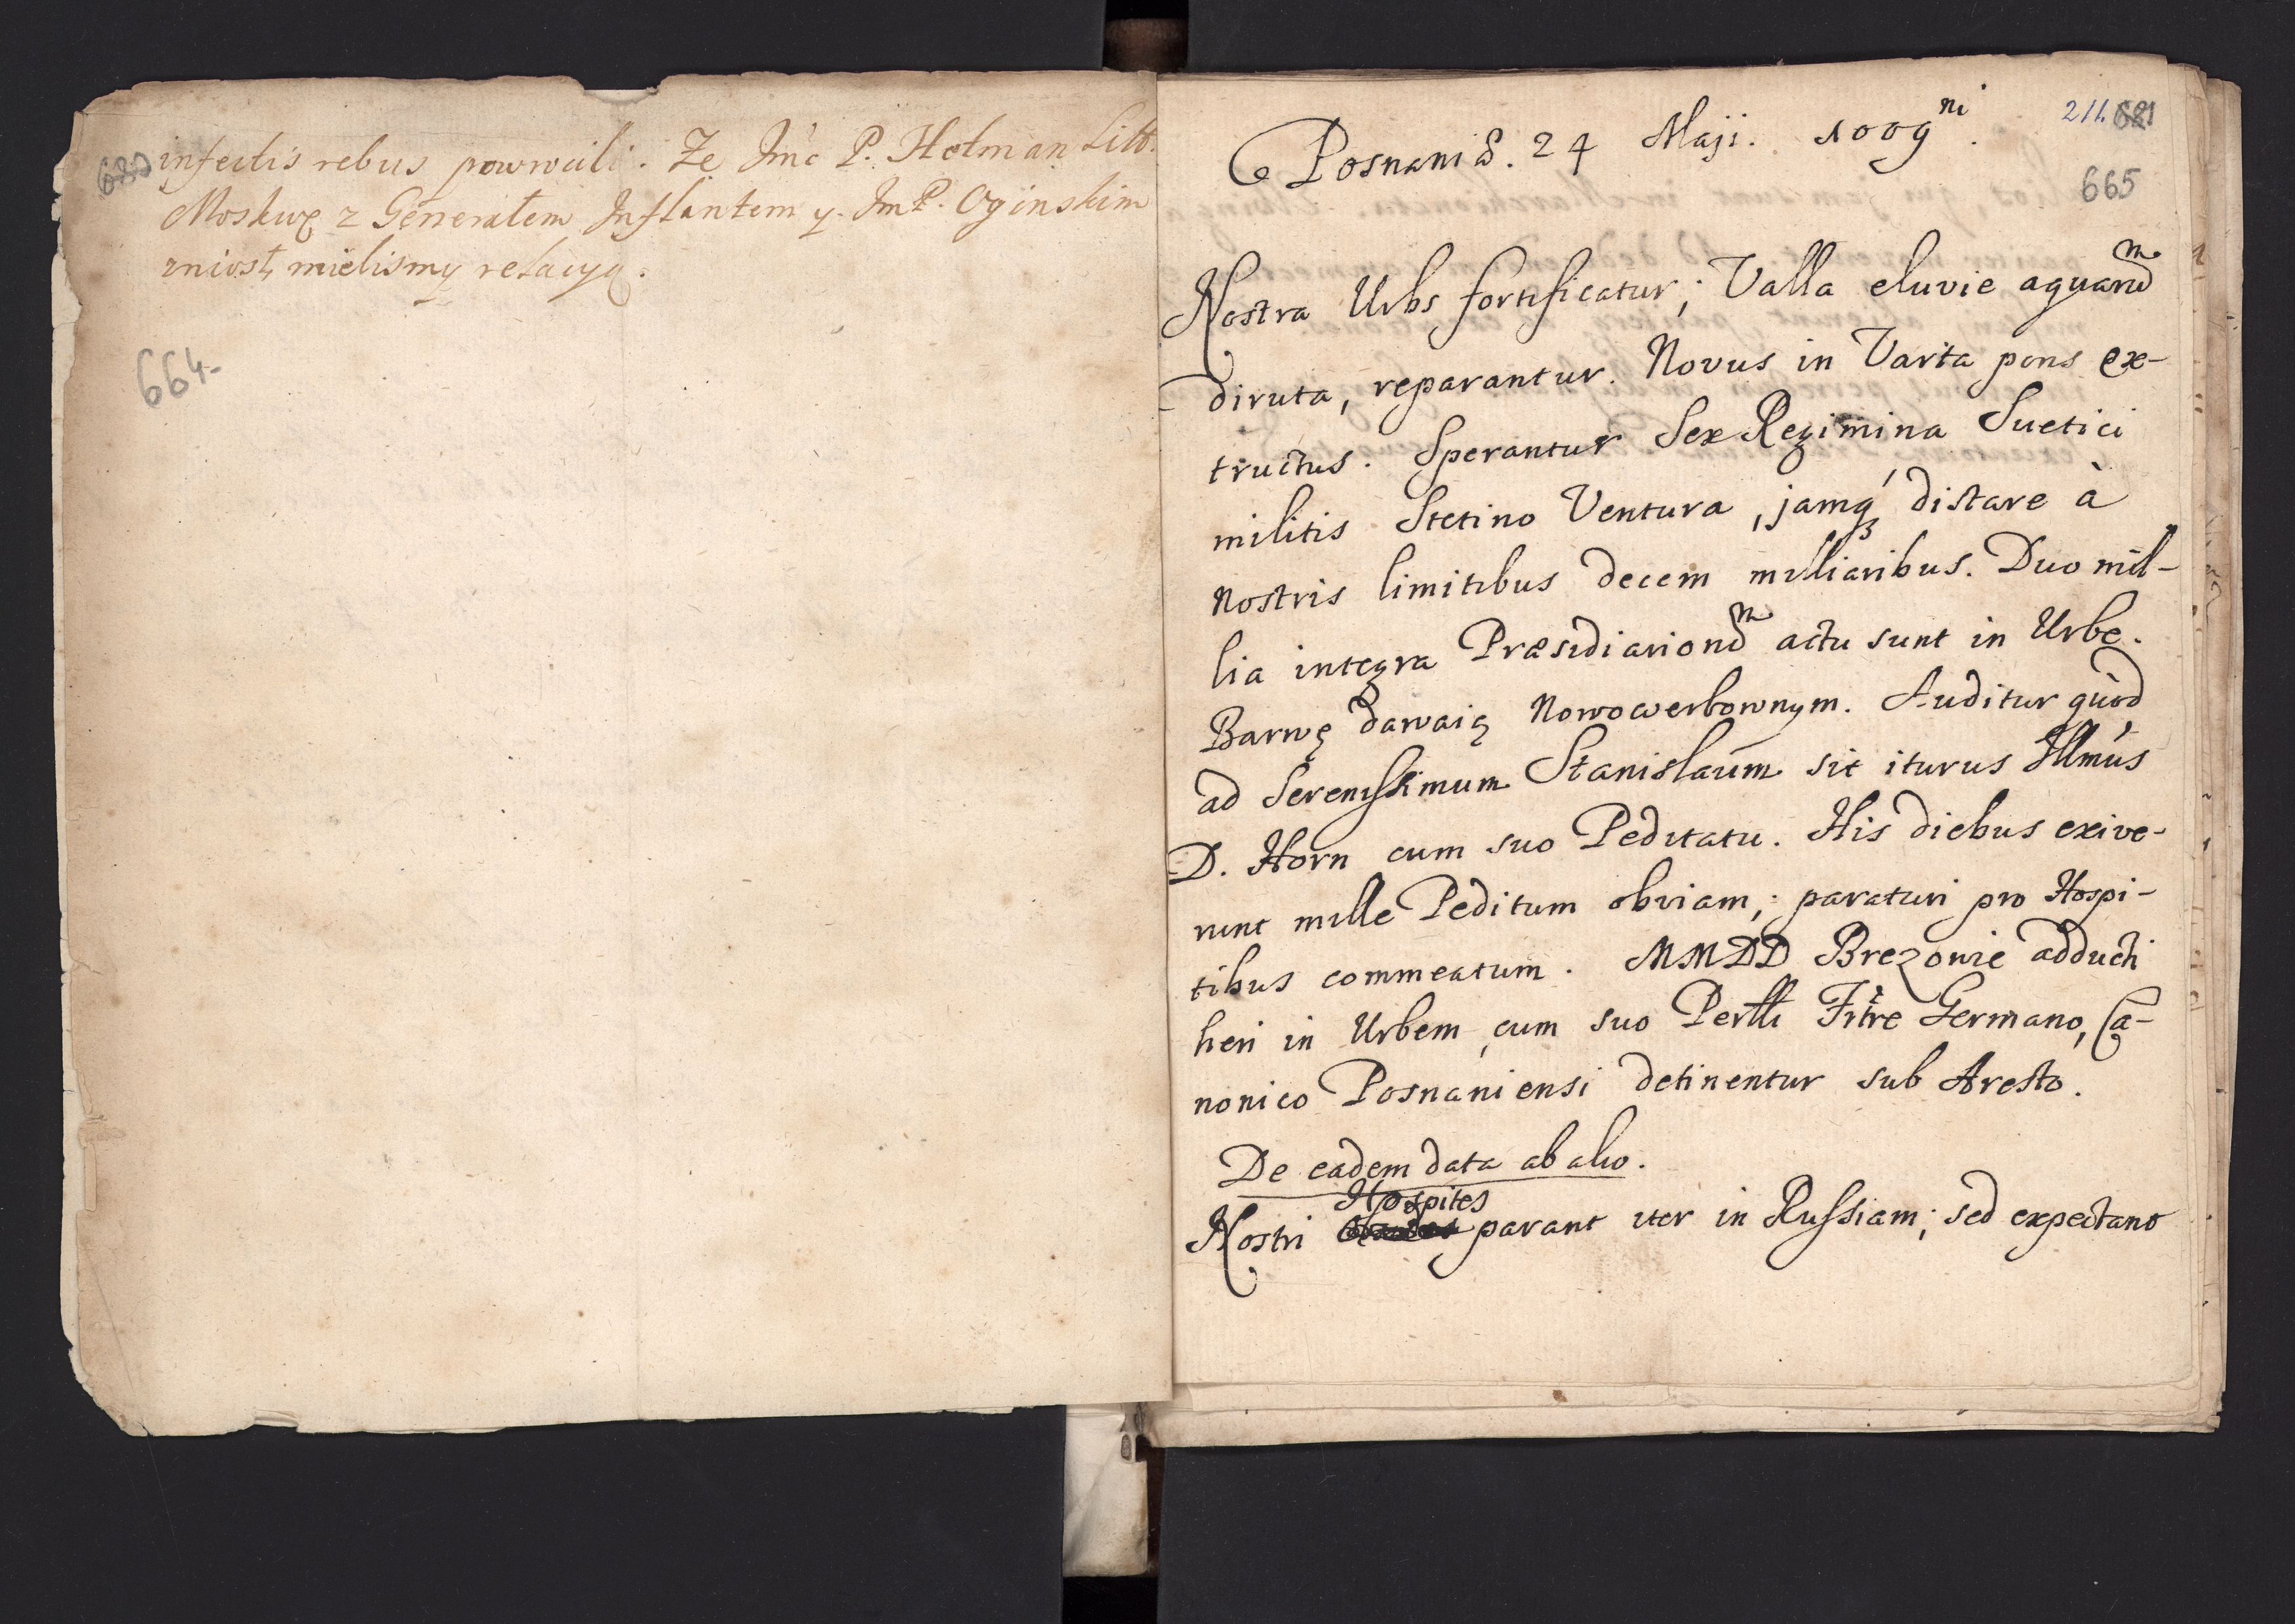 680 infectis rebus powrocili. Ze Jmć P. Hetman Litt.
Moskwę z Generałem Inflantem y Jm P. Oginskim
zniosł, mielismy relacyą.
664
211. 681
Posnaniæ. 24 Maji. 1009 ni.
665
Nostra Urbs fortificatur; Valla eluvie aquarum
diruta, reparantur. Novus in Varta pons ex-
tructus. Sperantur Sex Regimina Suetici
militis Stetino Ventura, jamq́ distare à
nostris limitibus decem milliaribus. Duo mil-
lia integra Præsidiariorum actu sunt in Urbe.
Barwę dawaią Nowowerbownym. Auditur quòd
ad Serenissimum Stanislaum sit iturus Illmus
D. Horn cum suo Peditatu. His diebus exive-
runt mille Peditum obviam; paraturi pro Hospi-
tibus commeatum. MMDD Brezowie adducti
heri in Urbem, cum suo Perlli Frtre Germano, Ca-
nonico Posnaniensi detinentur sub Aresto.
De eadem data ab alio.
Hospites
Nostri parant iter in Russiam; sed expectant